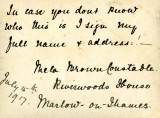 In case you dont know
who this is I sign my
full name & address:—
Meta Brown Constable.
Riverwoods House
Marlow-on-Thames.
July 4th